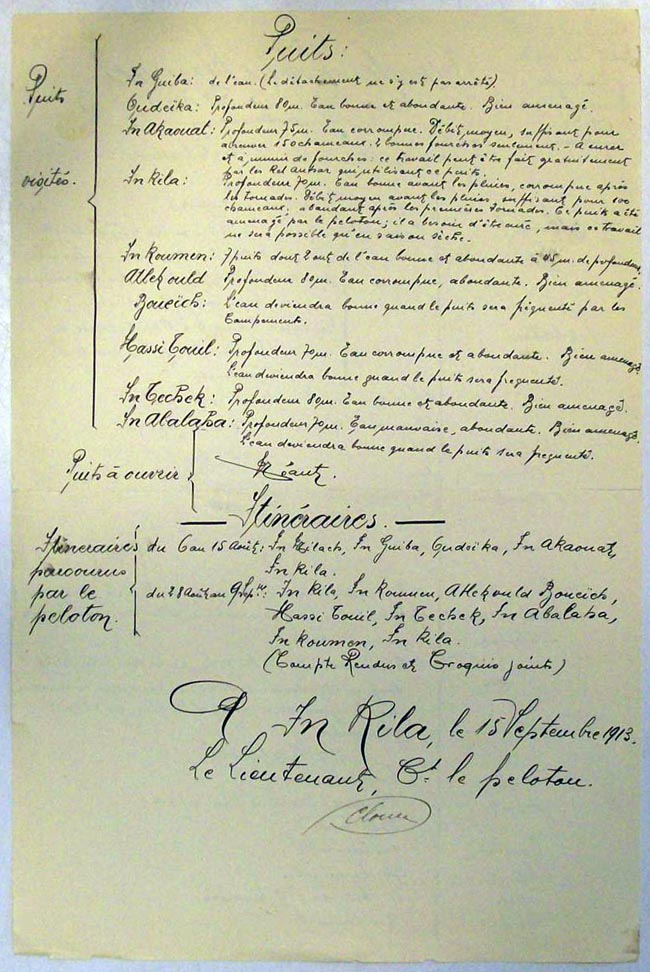 Puits:
Puits visités.
In Guiba: de l'eau. (Le détachement ne s'y est pas arrêté).
Oudeïka: Profondeur 80m. Eau bonne et abondante. Bien amenagé.
In Akaouat: Profondeur 75m. Eau corrompue. Débit moyen, suffisant pour
abreuver 150 chameaux. 2 bonnes fourches seulement. - A curer
et à munir de fourches: ce travail peut être fait gratuitement
par les Kel Antsar qui utilisent ce puits.
In Kila: Profondeur 70m. Eau bonne avant les pluies, corrompue après
les tornades. Débit moyen avant les pluies, suffisant pour 100
chameaux, abondant après les premières tornades. Ce puits a été
amenagé par le peloton; il a besoin d'être curé, mais ce travail
ne sera possible qu'en saison sèche.
In Koumen: 7 puits dont 2 ont de l'eau bonne et abondante à 45m. de profondeur.
Atlekould Profondeur 80m. Eau corrompue, abondante. Bien amenagé.
Boueich: L'eau deviendra bonne quand le puits sera fréquenté par les
Campements.
Hassi Touil: Profondeur 70m. Eau corrompue et abondante. Bien amenagé.
L'eau deviendra bonne quand le puits sera frequenté.
In Techek: Profondeur 80m. Eau bonne et abondante. Bien amenagé.
In Abalaha: Profondeur 70m. Eau mauvaise, abondante. Bien amenagé.
L'eau deviendra bonne quand le puits sera frequenté.
Puits à ouvrir Néant.
— Itinéraires. —
Itineraires du 6 au 15 Août: In Milach, In Guiba, Oudeïka, In Akaouat,
parcourus In Kila.
par le du 28 Août au 9 Sept: In Kila, In Koumen, Atlekould Boueich,
peloton. Hassi Touil, In Techek, In Abalaha,
In Koumen, In Kila.
(Compte Rendus et Croquis joints)
A In Kila, le 15 Septembre 1913.
Le Lieutenant, Ct le peloton.